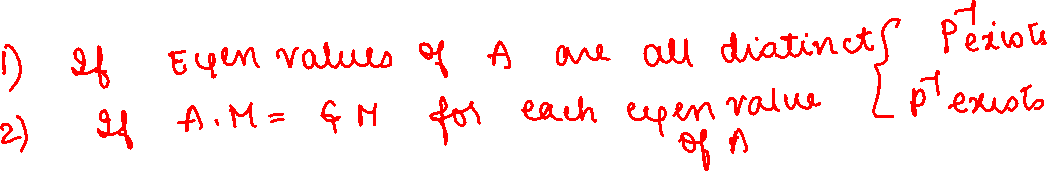 1) If Eigen values of A are all distinct { P⁻¹ exists
2) If A.M = G M for each eigen value { P⁻¹ exists
of A